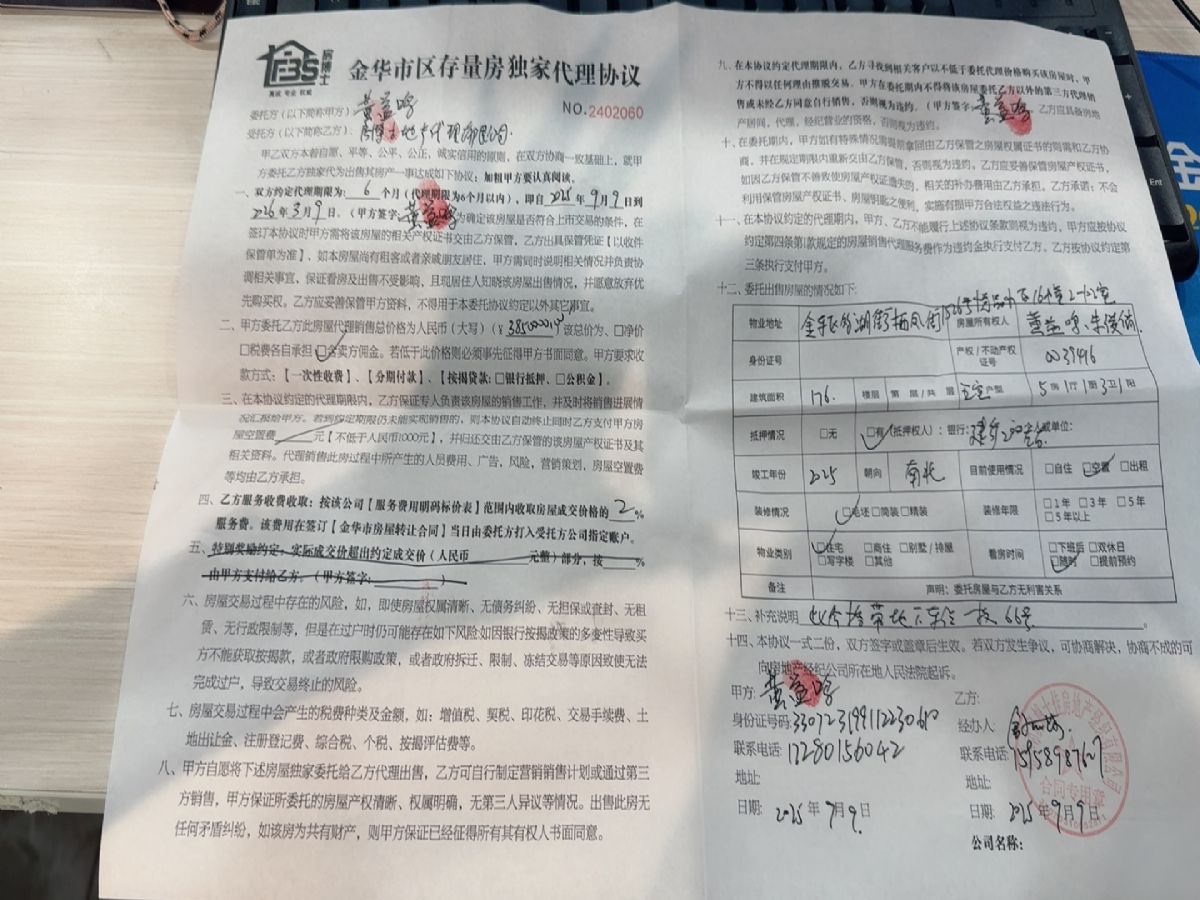 FBS
房博士
真诚 专业 权威
金华市区存量房独家代理协议
NO.2402060
委托方（以下简称甲方） 黄益鸣
受托方（以下简称乙方）： 房博士地产代理有限公司
甲乙双方本着自愿、平等、公平、公正、诚实信用的原则，在双方协商一致基础上，就甲
方委托乙方独家代为出售其房产一事达成如下协议：加粗甲方要认真阅读。
一、双方约定代理期限为： 6 个月（代理期限为6个月以内），即自 2025 年 9 月 9 日到
2026 年 3 月 9 日。（甲方签字 黄益鸣 为确定该房屋是否符合上市交易的条件，在
签订本协议时甲方需将该房屋的相关产权证书交由乙方保管，乙方出具保管凭证【以收件
保管单为准】，如本房屋尚有租客或者亲戚朋友居住，甲方需同时说明相关情况并负责协
调相关事宜，保证看房及出售不受影响，且现居住人知晓该房屋出售情况，并愿意放弃优
先购买权。乙方应妥善保管甲方资料，不得用于本委托协议约定以外其它事宜。
二、甲方委托乙方此房屋代理销售总价格为人民币（大写）（￥3850000 该总价为、□净价
□税费各自承担 □含卖方佣金。若低于此价格则必须事先征得甲方书面同意。甲方要求收
款方式：【一次性收费】、【分期付款】、【按揭贷款：□银行抵押、□公积金】。
三、在本协议约定的代理期限内，乙方保证专人负责该房屋的销售工作，并及时将销售进展情
况汇报给甲方。若到约定期限仍未能实现销售的，则本协议自动终止同时乙方支付甲方房
屋空置费 元【不低于人民币1000元】，并归还交由乙方保管的该房屋产权证书及其
相关资料。代理销售此房过程中所产生的人员费用、广告，风险，营销策划，房屋空置费
等均由乙方承担。
四、乙方服务收费收取：按该公司【服务费用明码标价表】范围内收取房屋成交价格的 2 %
服务费。该费用在签订【金华市房屋转让合同】当日由委托方打入受托方公司指定账户。
五、特别奖励约定：实际成交价超出约定成交价（人民币 元整）部分，按 %
由甲方支付给乙方。（甲方签字： ）
六、房屋交易过程中存在的风险，如，即使房屋权属清晰、无债务纠纷、无担保或查封、无租
赁、无行政限制等，但是在过户时仍可能存在如下风险:如因银行按揭政策的多变性导致买
方不能获取按揭款，或者政府限购政策，或者政府拆迁、限制、冻结交易等原因致使无法
完成过户，导致交易终止的风险。
七、房屋交易过程中会产生的税费种类及金额，如：增值税、契税、印花税、交易手续费、土
地出让金、注册登记费、综合税、个税、按揭评估费等。
八、甲方自愿将下述房屋独家委托给乙方代理出售，乙方可自行制定营销销售计划或通过第三
方销售，甲方保证所委托的房屋产权清晰、权属明确，无第三人异议等情况。出售此房无
任何矛盾纠纷，如该房为共有财产，则甲方保证已经征得所有其有权人书面同意。
九、在本协议约定代理期限内，乙方寻找到相关客户以不低于委托代理价格购买该房屋时，甲
方不得以任何理由推脱交易。甲方在委托期内不得将该房屋委托乙方以外的第三方代理销
售或未经乙方同意自行销售，否则视为违约。（甲方签字 黄益鸣 乙方应具备房地
产居间，代理，经纪营业的资格，否则视为违约。
十、在委托期内，甲方如有特殊情况需提前拿回由乙方保管之房屋权属证书的则需和乙方协
商，并在规定期限内重新交由乙方保管，否则视为违约，乙方应妥善保管房屋产权证书，
如因乙方保管不善致使房屋产权证遗失的，相关的补办费用由乙方承担。乙方承诺：不会
利用保管房屋产权证书、房屋钥匙之便利，实施有损甲方合法权益之违法行为。
十一、在本协议约定的代理期内，甲方、乙方不能履行上述协议条款则视为违约，甲方应按协议
约定第四条第1款规定的房屋销售代理服务费作为违约金执行支付乙方。乙方按协议约定第
三条执行支付甲方。
十二、委托出售房屋的情况如下:
物业地址 湖街栖凤街1526号 16幢2- 室 房屋所有权人 黄益鸣、朱俊倩
身份证号 产权/不动产权证号 0039496
建筑面积 176. 楼层 第 层/共 层 户型 5房1厅 3卫1阳
抵押情况 □无 □有（抵押权人）：银行: 建行200 或单位:
竣工年份 2025 朝向 南北 目前使用情况 □自住 □空置 □出租
装修情况 □毛坯 □简装 □精装 装修年限 □1年 □3年 □5年 □5年以上
物业类别 □住宅 □商住 □别墅/排屋 □写字楼 □其他 看房时间 □下班后 □双休日 □随时 □提前预约
备注 声明：委托房屋与乙方无利害关系
十三、补充说明 此价格带地下车位 66号 。
十四、本协议一式二份，双方签字或盖章后生效。若双方发生争议，可协商解决，协商不成的可
向房地产经纪公司所在地人民法院起诉。
甲方: 黄益鸣 乙方:
身份证号码: 经办人
联系电话: 17280156042 联系电话: 15958987607
地址: 地址:
日期: 2025 年 9 月 9 日 日期: 2025 年 9 月 9 日
公司名称:
合同专用章
Ent